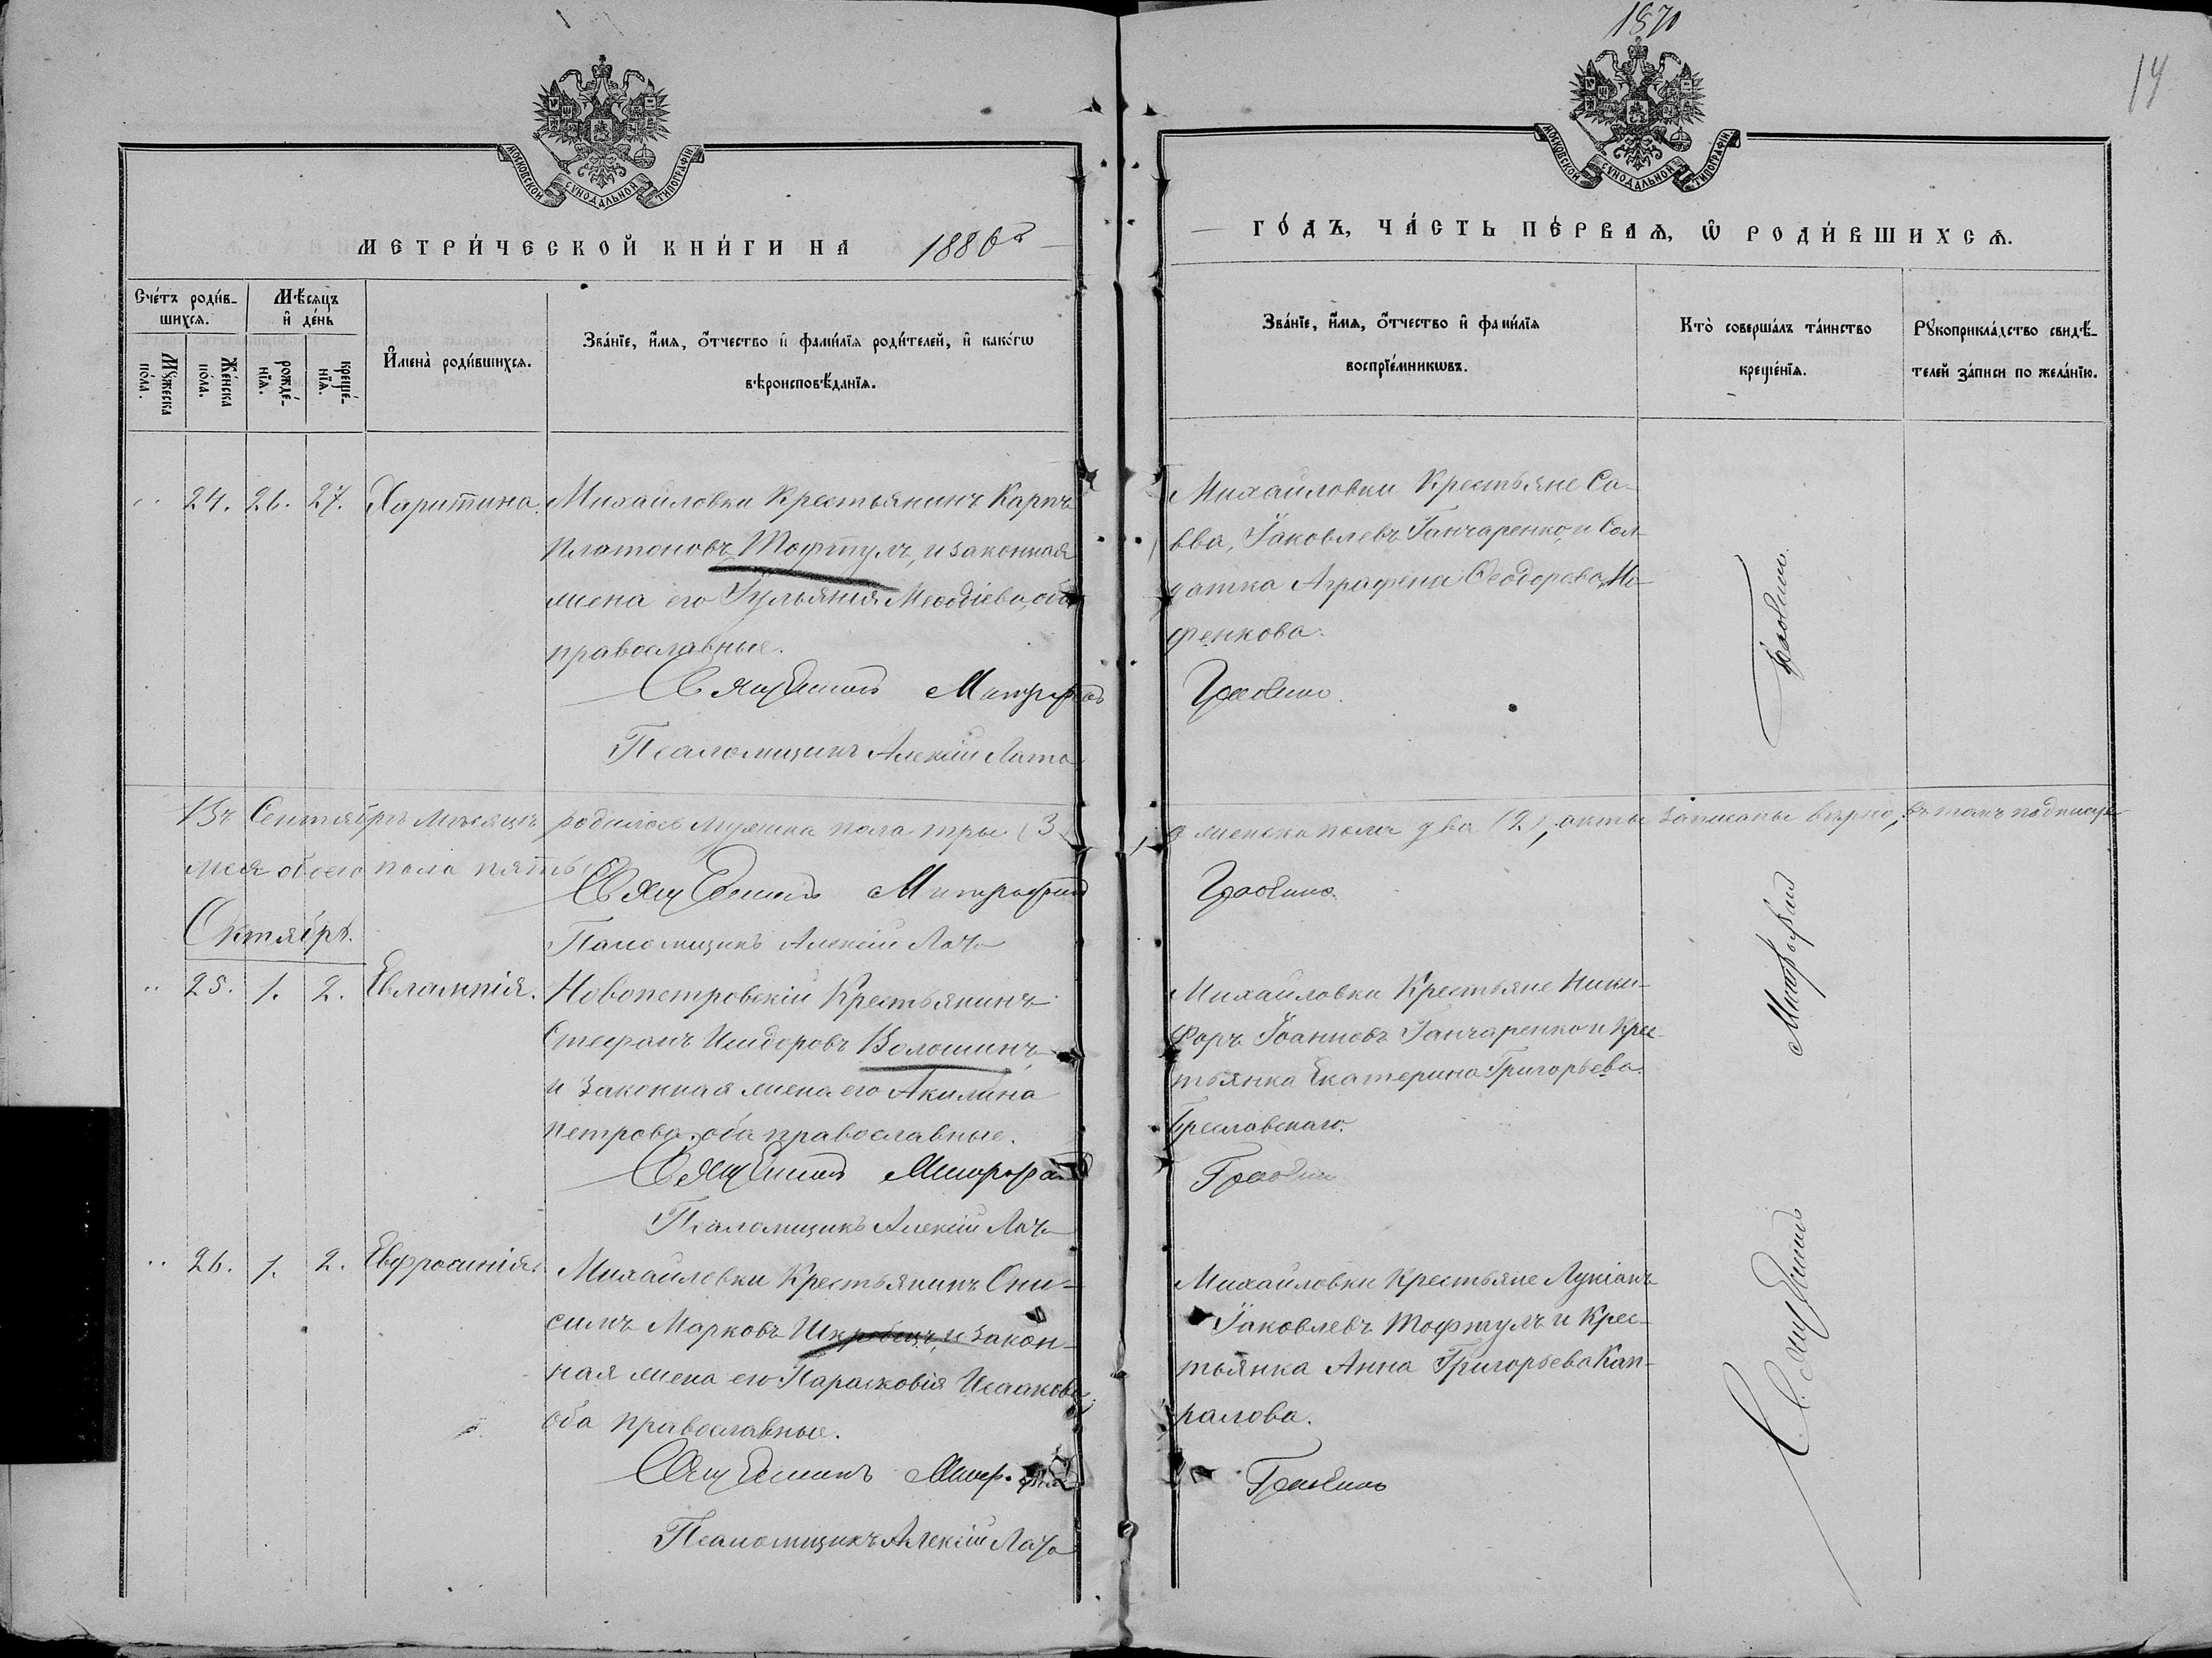 1870
14
МОСКОВСКОЙ СѴНОДАЛЬНОЙ ТИПОГРАФІИ
МОСКОВСКОЙ СѴНОДАЛЬНОЙ ТИПОГРАФІИ
МЕТРИ́ЧЕСКОЙ КНИ́ГИ НА 1886й
ГО́ДЪ, ЧА́СТЬ ПЕ́РВАѦ, Ѡ РОДИ́ВШИХСѦ.
Сче́тъ роди́в-
шихсѧ.
Мѣ́сѧцъ
и҆ де́нь
Мꙋ́жеска
по́ла.
Же́нска
по́ла.
рожде́-
нїѧ.
креще́-
нїѧ.
И҆мена̀ роди́вшихсѧ.
Зва́нїе, и҆́мѧ, ѻ҆́тчество и҆ фами́лїѧ роди́телей, и҆ како́гѡ
вѣроисповѣ́данїѧ.
Зва́нїе, и҆́мѧ, ѻ҆́тчество и҆ фами́лїѧ
воспрїе́мникѡвъ.
Кто̀ соверша́лъ та́инство
креще́нїѧ.
Рꙋкоприкла́дство свидѣ́-
телей за́писи по жела́нїю.
24. 26. 27. Харитина.
Михайловки Крестьянинъ Карпъ
Платоновъ Тофтулъ, и законная
жена его Іульянія Меѳодіева, оба
православные.
Священникъ Митрофанъ
Псаломщикъ Алексій Лата
Михайловки Крестьяне Са-
вва, Іаковлевъ Ганчаренко, и Сол-
датка Аграфена Ѳеодорева
фенкова.
Грабино.
Въ Сентябрѣ мѣсяцѣ родилось мужска пола три (3
а женска пола два (2), акты записаны вѣрно, въ томъ подписуе-
мся обоего пола пять
Священникъ Митрофанъ
Грабино.
Псаломщикъ Алексій Лата
Октябрь.
25. 1. 2. Евлампія.
Новопетровскій Крестьянинъ
Стефанъ Исидоровъ Волошинъ
и законная жена его Акилина
Петрова, оба православные.
Священникъ Митрофанъ
Псаломщикъ Алексій Лата
Михайловки Крестьяне Ники-
форъ Іоанновъ Ганчаренко и Крес-
тьянка Екатерина Григорьева
Бреславскаго.
Грабино
26. 1. 2. Евфросинія.
Михайловки Крестьянинъ Они-
симъ Марковъ и закон-
ная жена его Парасковія Исаакова,
оба православные.
Священникъ Митрофанъ
Псаломщикъ Алексій Лата
Михайловки Крестьяне Лукіанъ
Іаковлевъ Тофтулъ и Крес-
тьянка Анна Григорьева Кап-
ралова.
Грабино
Священникъ Митрофанъ Грабино.